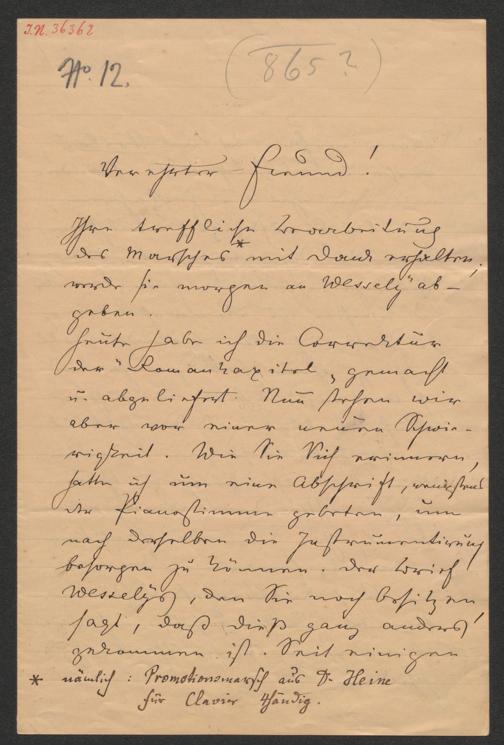 J.N. 36362
No. 12.
(865?)
Verehrter Freund!
Ihre treffliche Bearbeitung
des Marsches * mit Dank erhalten;
werde sie morgen an Wessely ab-
geben.
Heute habe ich die Correktur
der "Romankapitel" gemacht
u. abgeliefert. Nun stehen wir
aber vor einer neuen Schwie-
rigkeit. Wie Sie Sich erinnern,
hatte ich um eine Abschrift, wenigstens
der Pianostimme gebeten, um
nach derselben die Instrumentirung
besorgen zu können. Der Brief
Wesselys, den Sie noch besitzen,
sagt, daß dieß ganz anders
gekommen ist. Seit einigen
* nämlich: Promotionsmarsch aus Dr. Heine
für Clavier 4händig.